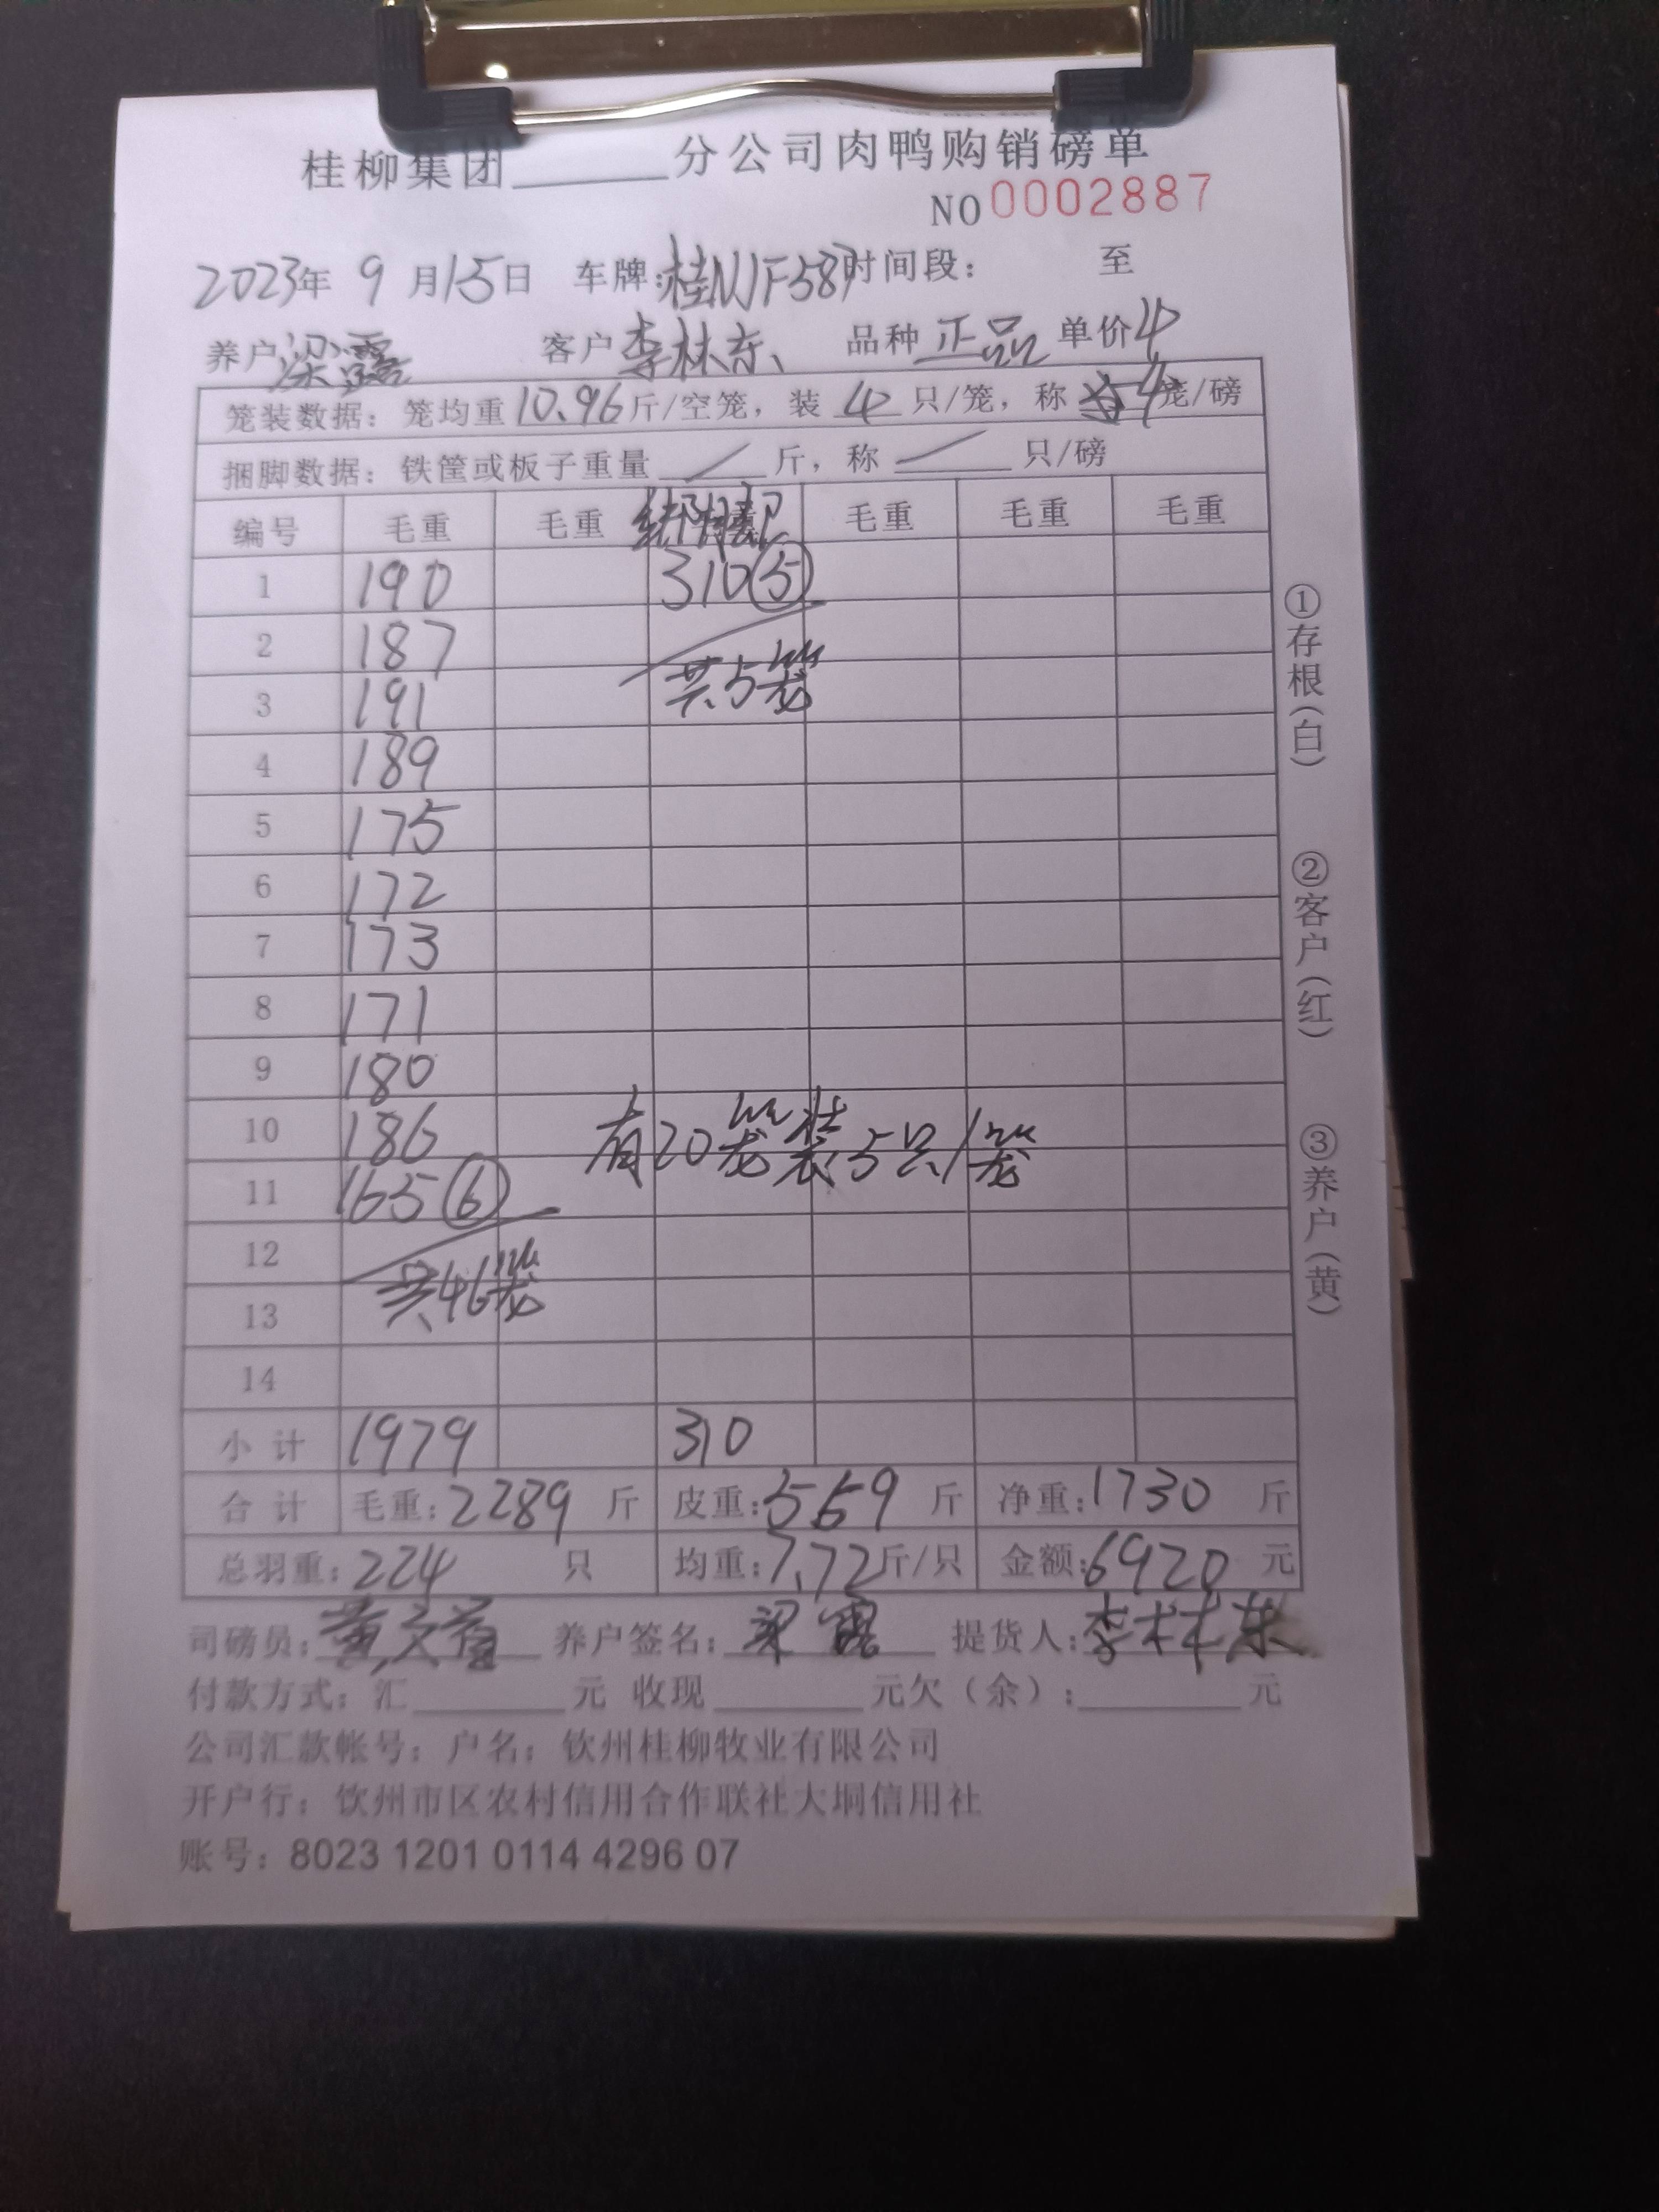 桂柳集团______分公司肉鸭购销磅单
NO 0002887
2023年 9 月15日 车牌:桂NJF587时间段: 至
养户 梁露 客户 李林东 品种 正品 单价4
笼装数据: 笼均重 10.96 斤/空笼, 装 4 只/笼, 称 4 笼/磅
捆脚数据: 铁筐或板子重量 / 斤, 称 / 只/磅
编号 毛重 毛重 毛重 毛重 毛重
1 190 310⑤
2 187
3 191 共5笼
4 189
5 175
6 172
7 173
8 171
9 180
10 186 有20笼装5只/笼
11 165⑥
12
13 共46笼
14
小 计 1979 310
合 计 毛重:2289 斤 皮重:559 斤 净重:1730 斤
总羽重:224 只 均重:7.72斤/只 金额:6920 元
司磅员: 养户签名:梁露 提货人:李林东
付款方式: 汇______元 收现______元欠(余):______元
公司汇款帐号: 户名: 钦州桂柳牧业有限公司
开户行: 钦州市区农村信用合作联社大垌信用社
账号: 8023 1201 0114 4296 07
①存根(白)
②客户(红)
③养户(黄)